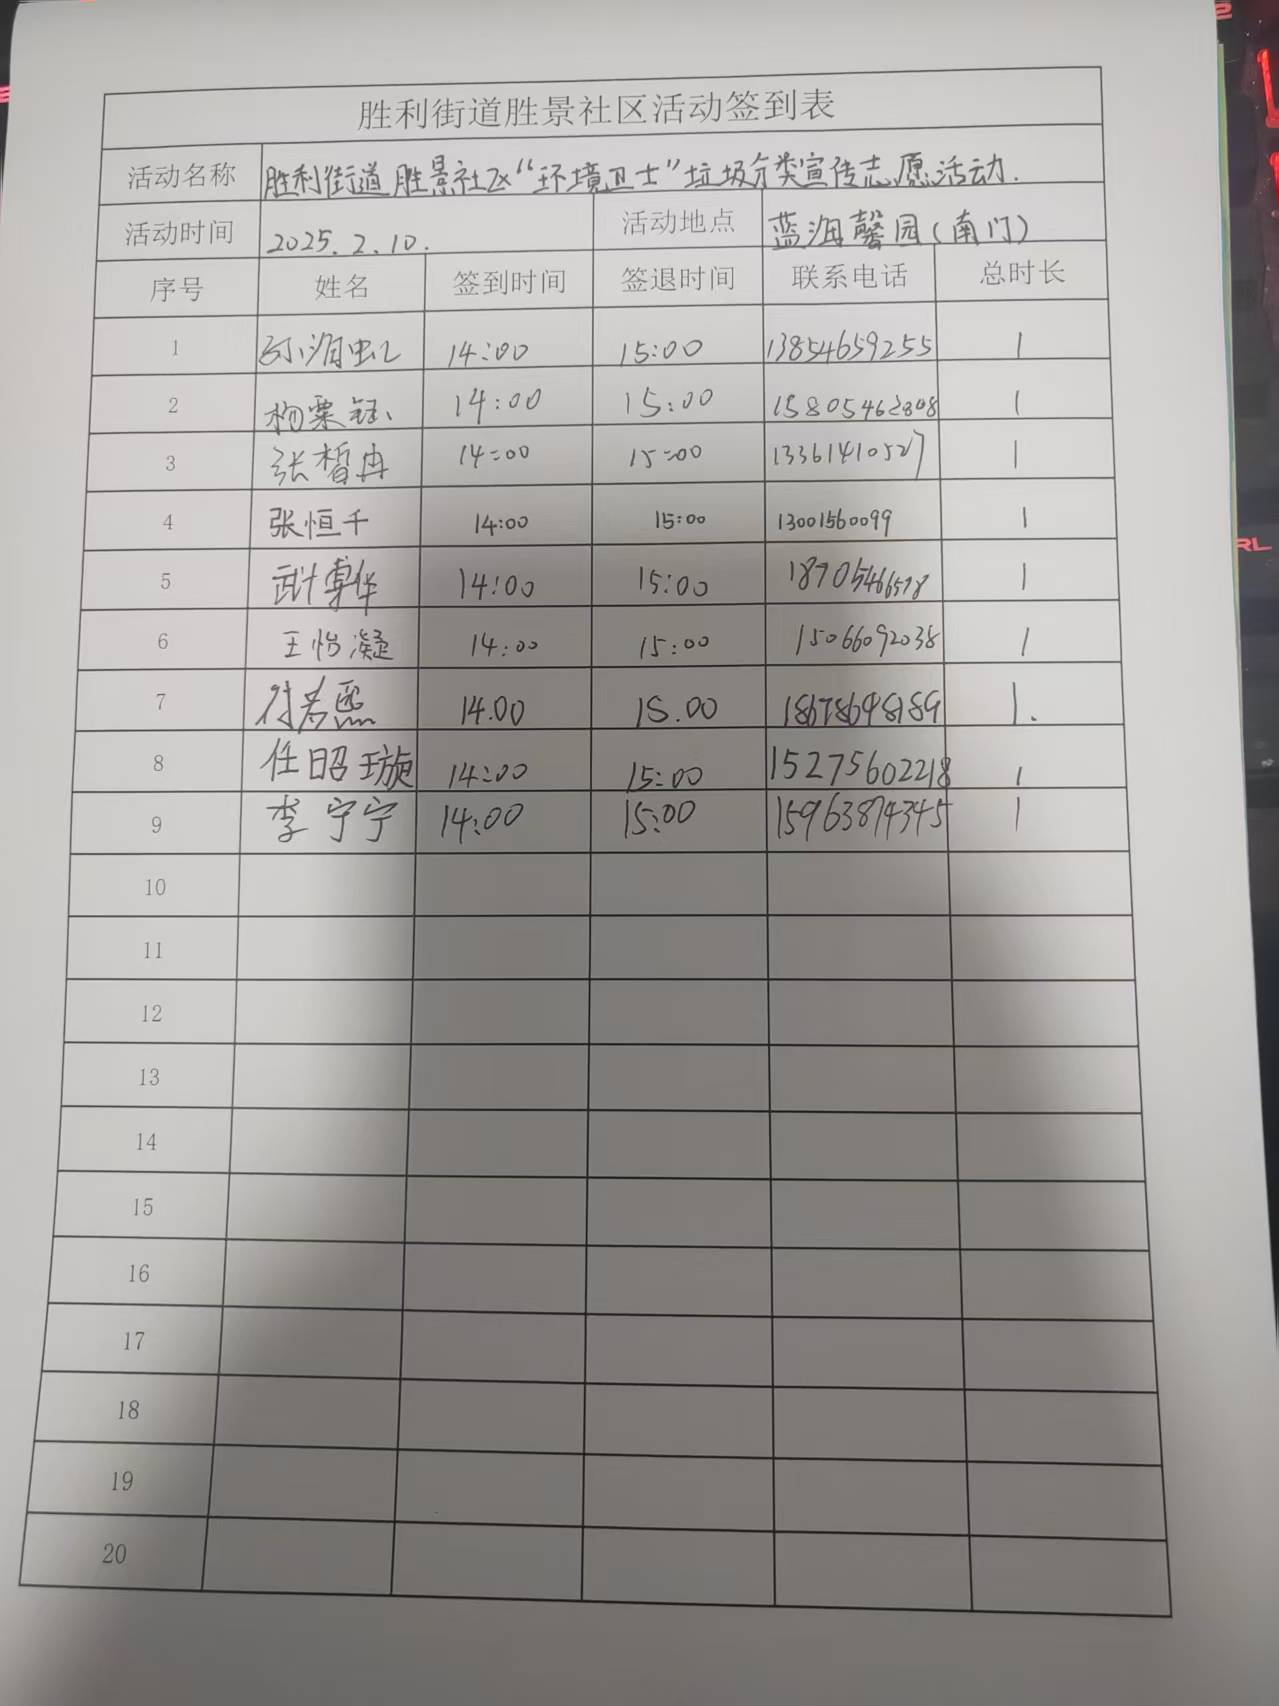 胜利街道胜景社区活动签到表
活动名称 胜利街道胜景社区“环境卫士”垃圾分类宣传志愿活动.
活动时间 2025.2.10. 活动地点 蓝海馨园(南门)
序号 姓名 签到时间 签退时间 联系电话 总时长
1 14:00 15:00 13854659255 1
2 14:00 15:00 1
3 张皙冉 14:00 15:00 13361410527 1
4 张恒千 14:00 15:00 13001560099 1
5 武博华 14:00 15:00 18705466578 1
6 王怡凝 14:00 15:00 15066092038 1
7 14.00 15.00 18678698189 1.
8 任昭璇 14:00 15:00 15275602218 1
9 李宁宁 14:00 15:00 15963874345 1
10
11
12
13
14
15
16
17
18
19
20